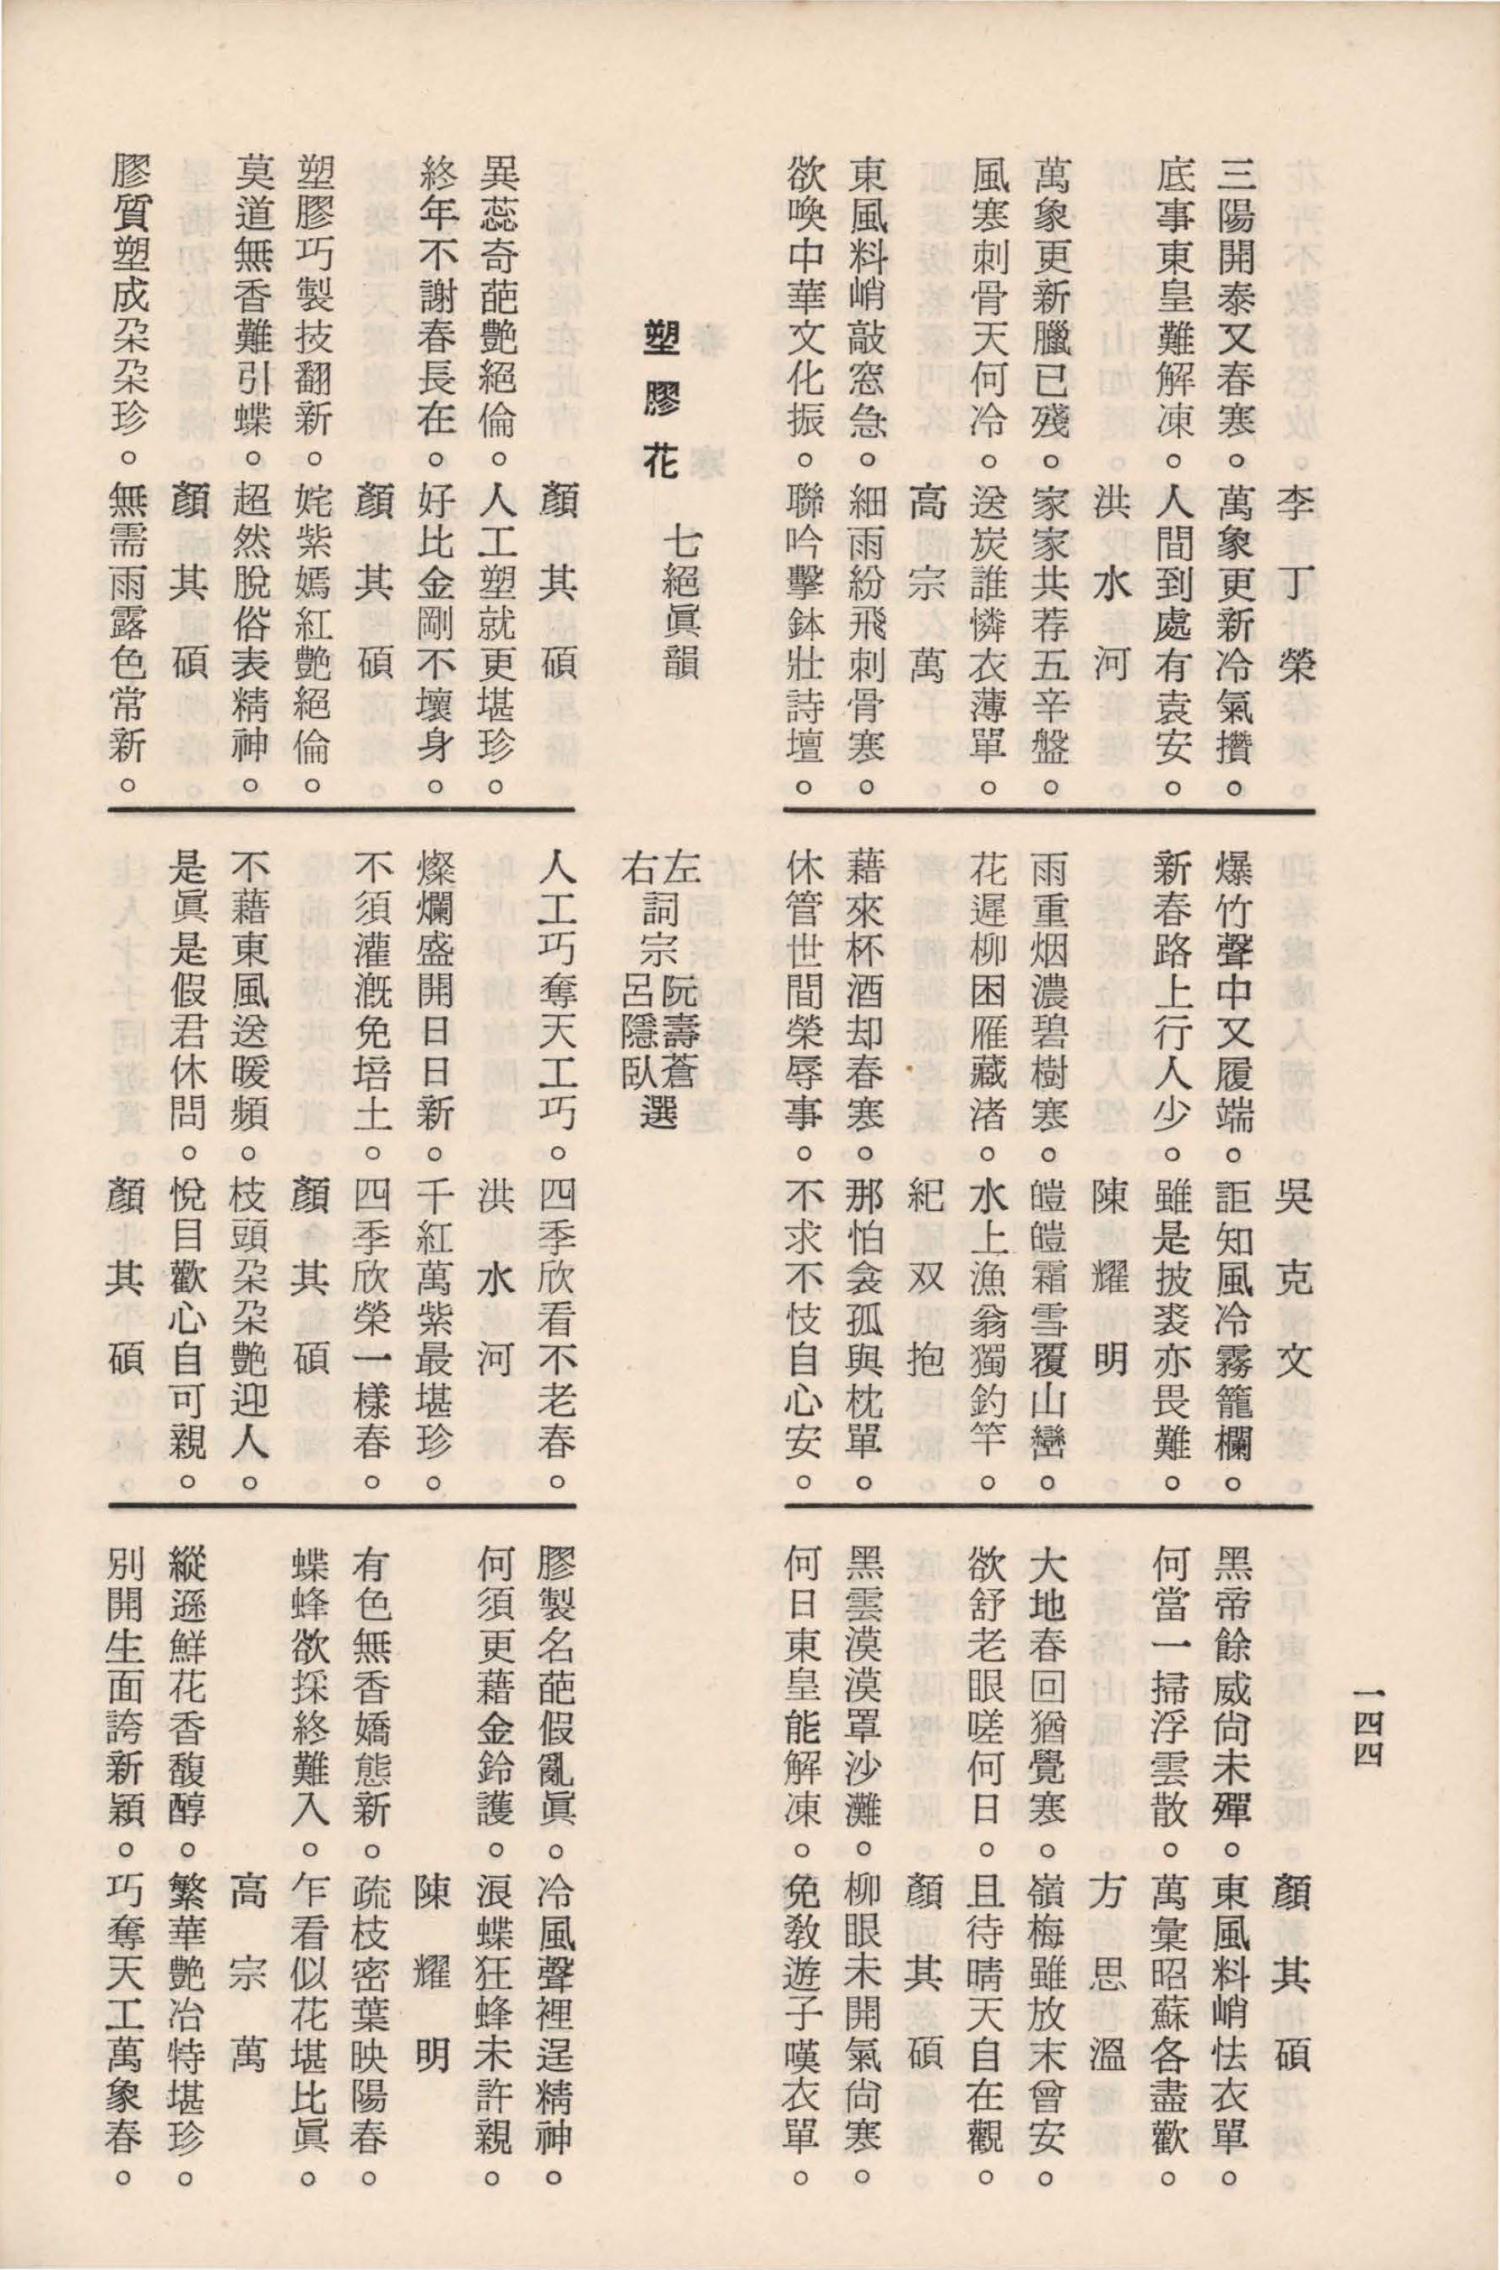 一四四
李丁榮
三陽開泰又春寒。萬象更新冷氣攢。
底事東皇難解凍。人間到處有袁安。
洪水河
萬象更新臘已殘。家家共荐五辛盤。
風寒刺骨天何冷。送炭誰憐衣薄單。
高宗萬
東風料峭敲窓急。細雨紛飛刺骨寒。
欲喚中華文化振。聯吟擊鉢壯詩壇。
吳克文
爆竹聲中又履端。詎知風冷霧籠欄。
新春路上行人少。雖是披裘亦畏難。
陳耀明
雨重烟濃碧樹寒。皚皚霜雪覆山巒。
花遲柳困雁藏渚。水上漁翁獨釣竿。
紀双抱
藉來杯酒却春寒。那怕衾孤與枕單。
休管世間榮辱事。不求不忮自心安。
顏其碩
黑帝餘威尙未殫。東風料峭怯衣單。
何當一掃浮雲散。萬彙昭蘇各盡歡。
方思溫
大地春回猶覺寒。嶺梅雖放末曾安。
欲舒老眼嗟何日。且待晴天自在觀。
顏其碩
黑雲漠漠罩沙灘。柳眼未開氣尙寒。
何日東皇能解凍。免敎遊子嘆衣單。
塑膠花 七絕眞韻
左詞宗 阮壽蒼選
右詞宗 呂隱臥選
顏其碩
異蕊奇葩艷絕倫。人工塑就更堪珍。
終年不謝春長在。好比金剛不壞身。
顏其碩
塑膠巧製技翻新。姹紫嫣紅艷絕倫。
莫道無香難引蝶。超然脫俗表精神。
顏其碩
膠質塑成朶朶珍。無需雨露色常新。
人工巧奪天工巧。四季欣看不老春。
洪水河
燦爛盛開日日新。千紅萬紫最堪珍。
不須灌漑免培土。四季欣榮一樣春。
顏其碩
不藉東風送暖頻。枝頭朶朶艷迎人。
是眞是假君休問。悅目歡心自可親。
顏其碩
膠製名葩假亂眞。冷風聲裡逞精神。
何須更藉金鈴護。浪蝶狂蜂未許親。
陳耀明
有色無香嬌態新。疏枝密葉映陽春。
蝶蜂欲採終難入。乍看似花堪比眞。
高宗萬
縱遜鮮花香馥醇。繁華艷冶特堪珍。
別開生面誇新穎。巧奪天工萬象春。